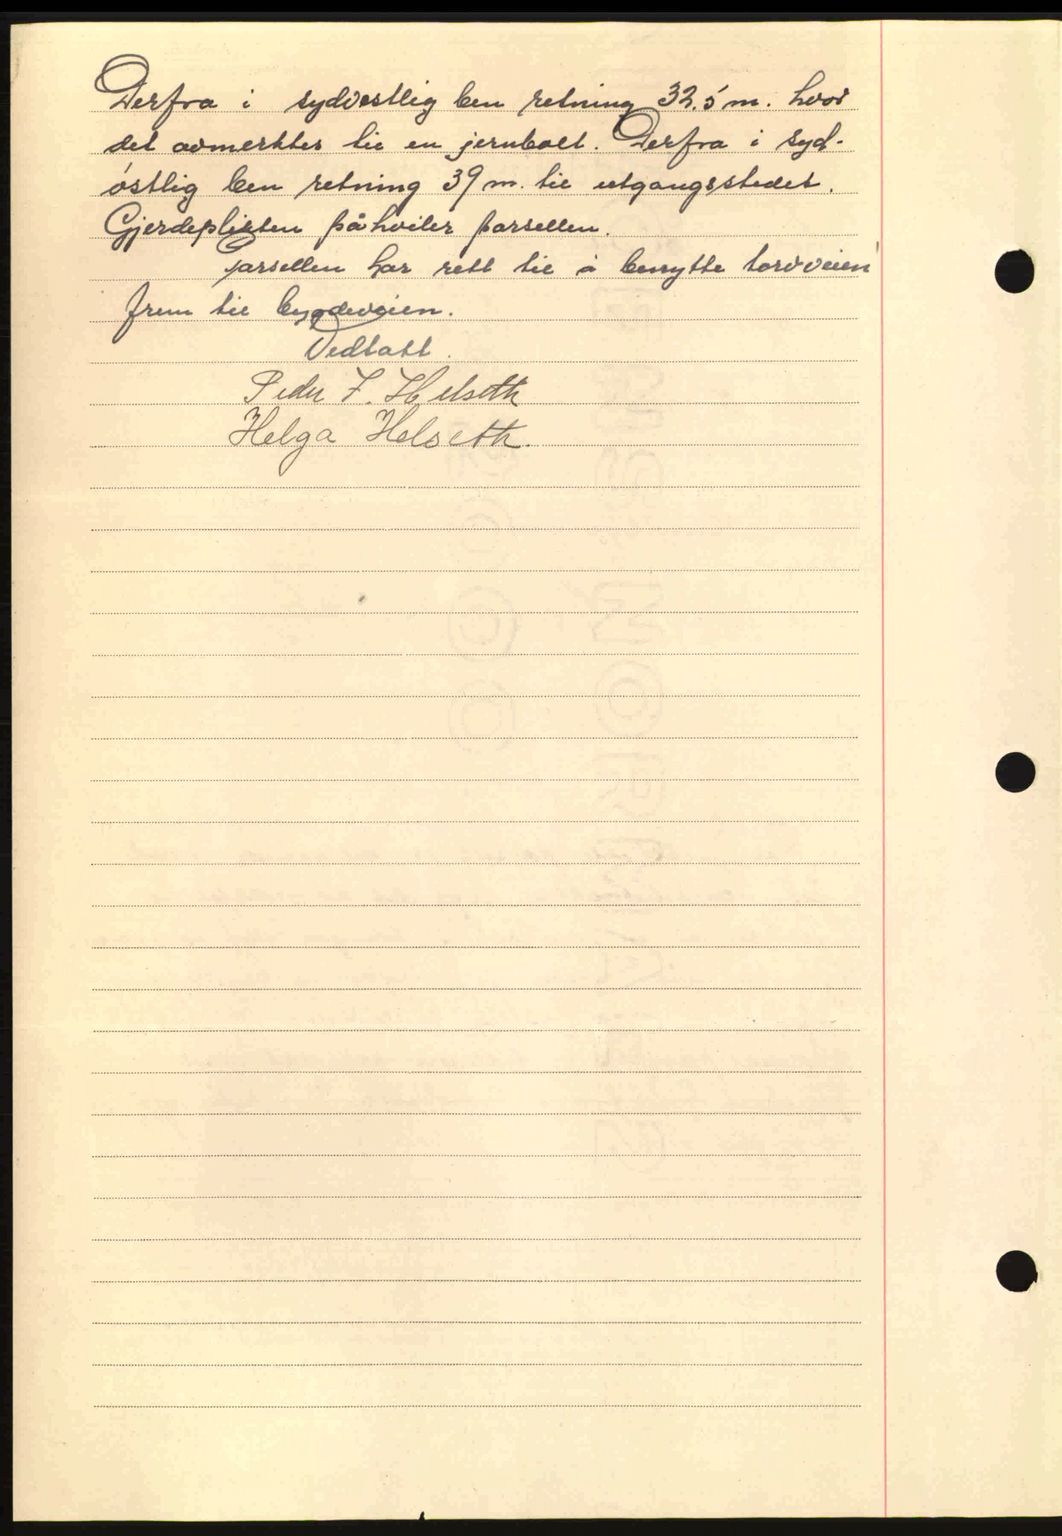 Derfra i sydvestlig ben retning 32,5 m. hvor
det avmerktes til en jernbolt. Derfra i syd-
østlig ben retning 39 m. til utgangsstedet.
Gjerdeplikten påhviler parsellen.
Parsellen har rett til å benytte torvveien
frem til bygdeveien.
Vedtatt.
Peder F. Helseth
Helga Helseth.